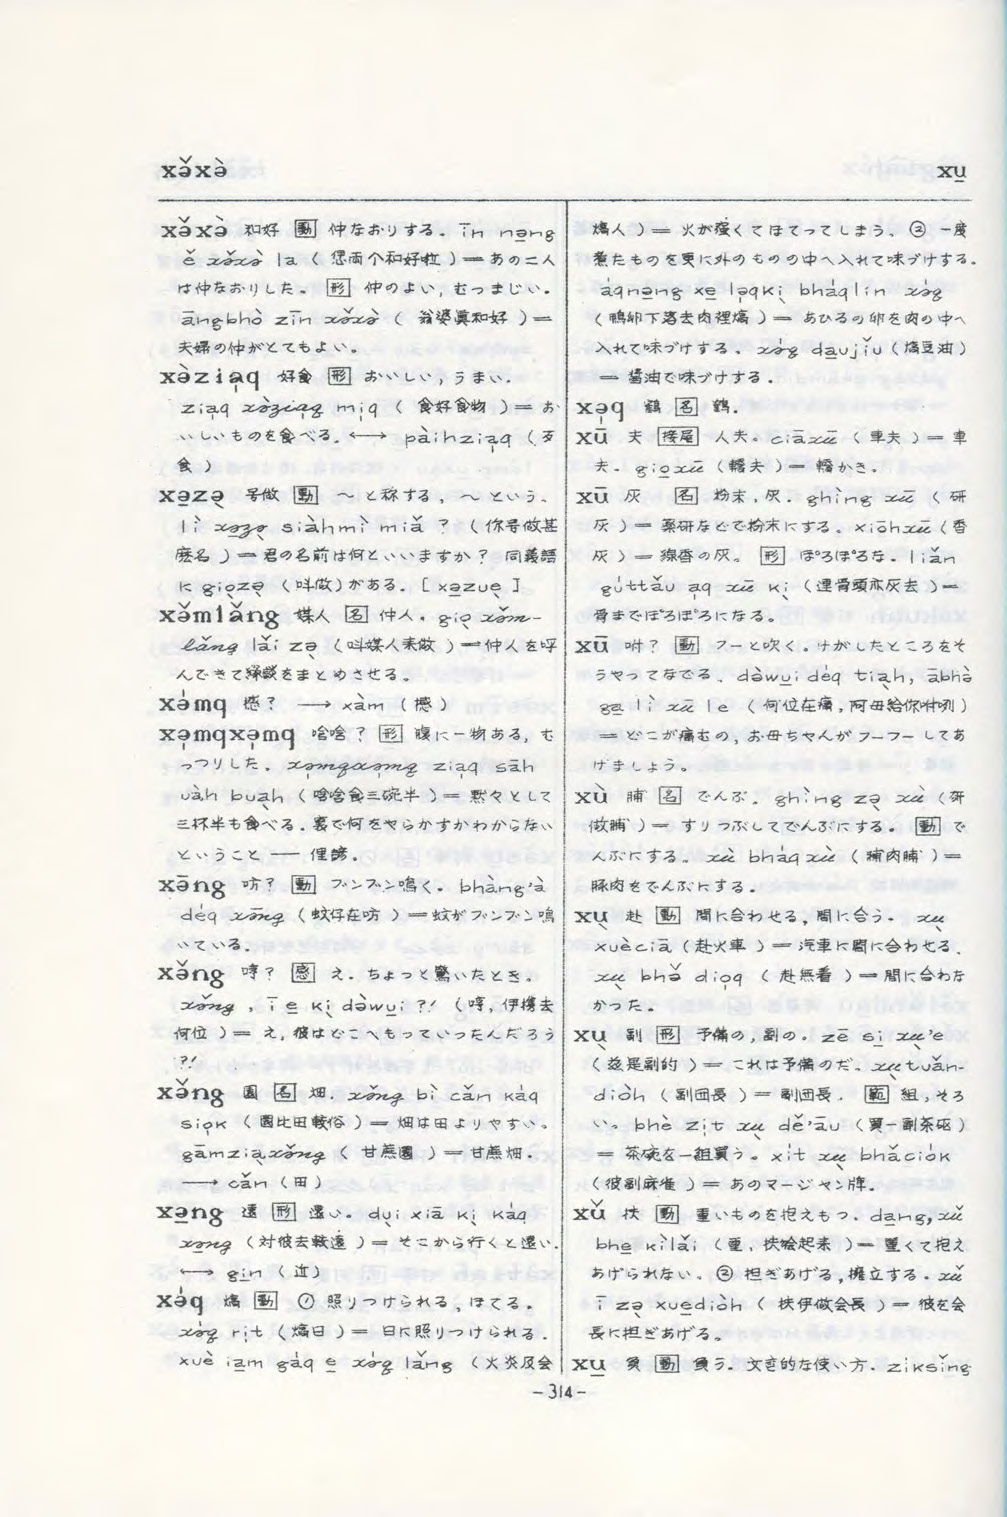 xə̌xə̀
xu̲
xə̌xə̀ 和好 [動] 仲なおりする。īn nə̲ng
ě xə̌xə̀ la ( 恁両个和好啦 )=あの二人
は仲なおりした。 [形] 仲のよい, むつまじい。
āngbhò zīn xə̌xə̀ ( 翁婆眞和好 )=
夫婦の仲がとてもよい。
xə̀ziaq 好食 [形] おいしい, うまい.
ziaq xə̀ziaq miq ( 食好食物 )=お
いしいものを食べる。←→ pàihziaq (歹
食 )
xə̲zə 号做 [動] 〜と称する, 〜という.
lì xə̲zə siàhmì miǎ ? (你号做甚
麼名 )=君の名前は何といいますか? 同義語
に giozə (叫做)がある. [ xə̲zue ]
xə̌mlǎng 媒人 [名] 仲人. gio xə̌m-
lǎng lǎi zə (叫媒人来做 )=仲人を呼
んできて縁談をまとめさせる.
xə́mq 憾? → xàm (憾)
xəmqxəmq 唅唅? [形] 腹に一物ある, む
っつりした. xəmqxəmq ziaq sāh
uàh buah (唅唅食三碗半 )=黙々として
三杯半も食べる. 裏で何をやらかすかわからない
ということ── 俚諺.
xə̄ng 吭? [動] ブンブン鳴く. bhàng'à
déq xə̄ng (蚊仔在吭 )=蚊がブンブン鳴
いている.
xə̌ng 哼? [感] え. ちょっと驚いたとき.
xə̌ng , ī e ki dəwui ?! (哼, 伊携去
何位 )= え, 彼はどこへもっていったんだろう
?!
xə̌ng 園 [名] 畑. xə̌ng bì cǎn káq
siok (園比田較俗 )=畑は田よりやすい。
gāmziaxə̌ng ( 甘蔗園 )=甘蔗畑.
→ cǎn (田)
xə̲ng 遠 [形] 遠い. dui xiā ki káq
xə̲ng (対彼去較遠 )=そこから行くと遠い.
←→ gin (近)
xə́q 熇 [動] ① 照りつけられる, ほてる.
xə́q rit (熇日 )= 日に照りつけられる.
xuè iam gáq e xə́q lǎng (火炎及会
熇人 )= 火が強くてほてってしまう. ② 一度
煮たものを更に外のものの中へ入れて味づけする.
áqnə̲ng xe̲ ləqki bháqlín xə́q
(鴨卵下落去肉裡熇 )= あひるの卵を肉の中へ
入れて味づけする. xə́q dau̲jǐu (熇豆油)
= 醤油で味づけする.
xəq 鶴 [名] 鶴.
xū 夫 [接尾] 人夫. ciāxū (車夫 )=車
夫. gioxū (轎夫 )=轎かき.
xū 灰 [名] 粉末, 灰. ghìng xū (研
灰 )= 薬研などで粉末にする. xiōhxū (香
灰 )=線香の灰。 [形] ぼろぼろな. liǎn
gúttǎu aq xū ki (連骨頭亦灰去 )=
骨までぼろぼろになる。
xū 咐? [動] フーと吹く. けがしたところをそ
うやってなでる. dəwui déq tiah, ābhə̀
ga̲ lì xū le (何位在痛, 阿母給你咐咧)
= どこが痛むの, お母ちゃんがフーフーしてあ
げましょう。
xù 脯 [名] でんぶ. ghìng zə xù (研
做脯 )= すりつぶしてでんぶにする。 [動] で
んぶにする. xù bháq xù (脯肉脯 )=
豚肉をでんぶにする.
xu 赴 [動] 間に合わせる, 間に合う. xu
xuècia (赴火車 )=汽車に間に合わせる.
xu bhə̌ dioq ( 赴無着 )=間に合わな
かった.
xu 副 [形] 予備の, 副の. zē si̲ xu'e
(茲是副的 )=これは予備のだ. xutuǎn-
diòh (副団長 )=副団長. [範] 組, そろ
い. bhè zit xu dě'āu (買一副茶甌)
= 茶碗を一組買う. xit xu bhǎciòk
(彼副麻雀 )= あのマージャン牌.
xǔ 扶 [動] 重いものを抱えもつ. da̲ng, xǔ
bhe̲ kìlǎi (重, 扶𫢶起来 )=重くて抱え
あげられない. ② 担ぎあげる, 擁立する. xǔ
ī zə xue̲diòh ( 扶伊做会長 )= 彼を会
長に担ぎあげる。
xu̲ 負 [動] 負う. 文言的な使い方. ziksǐng
-314-